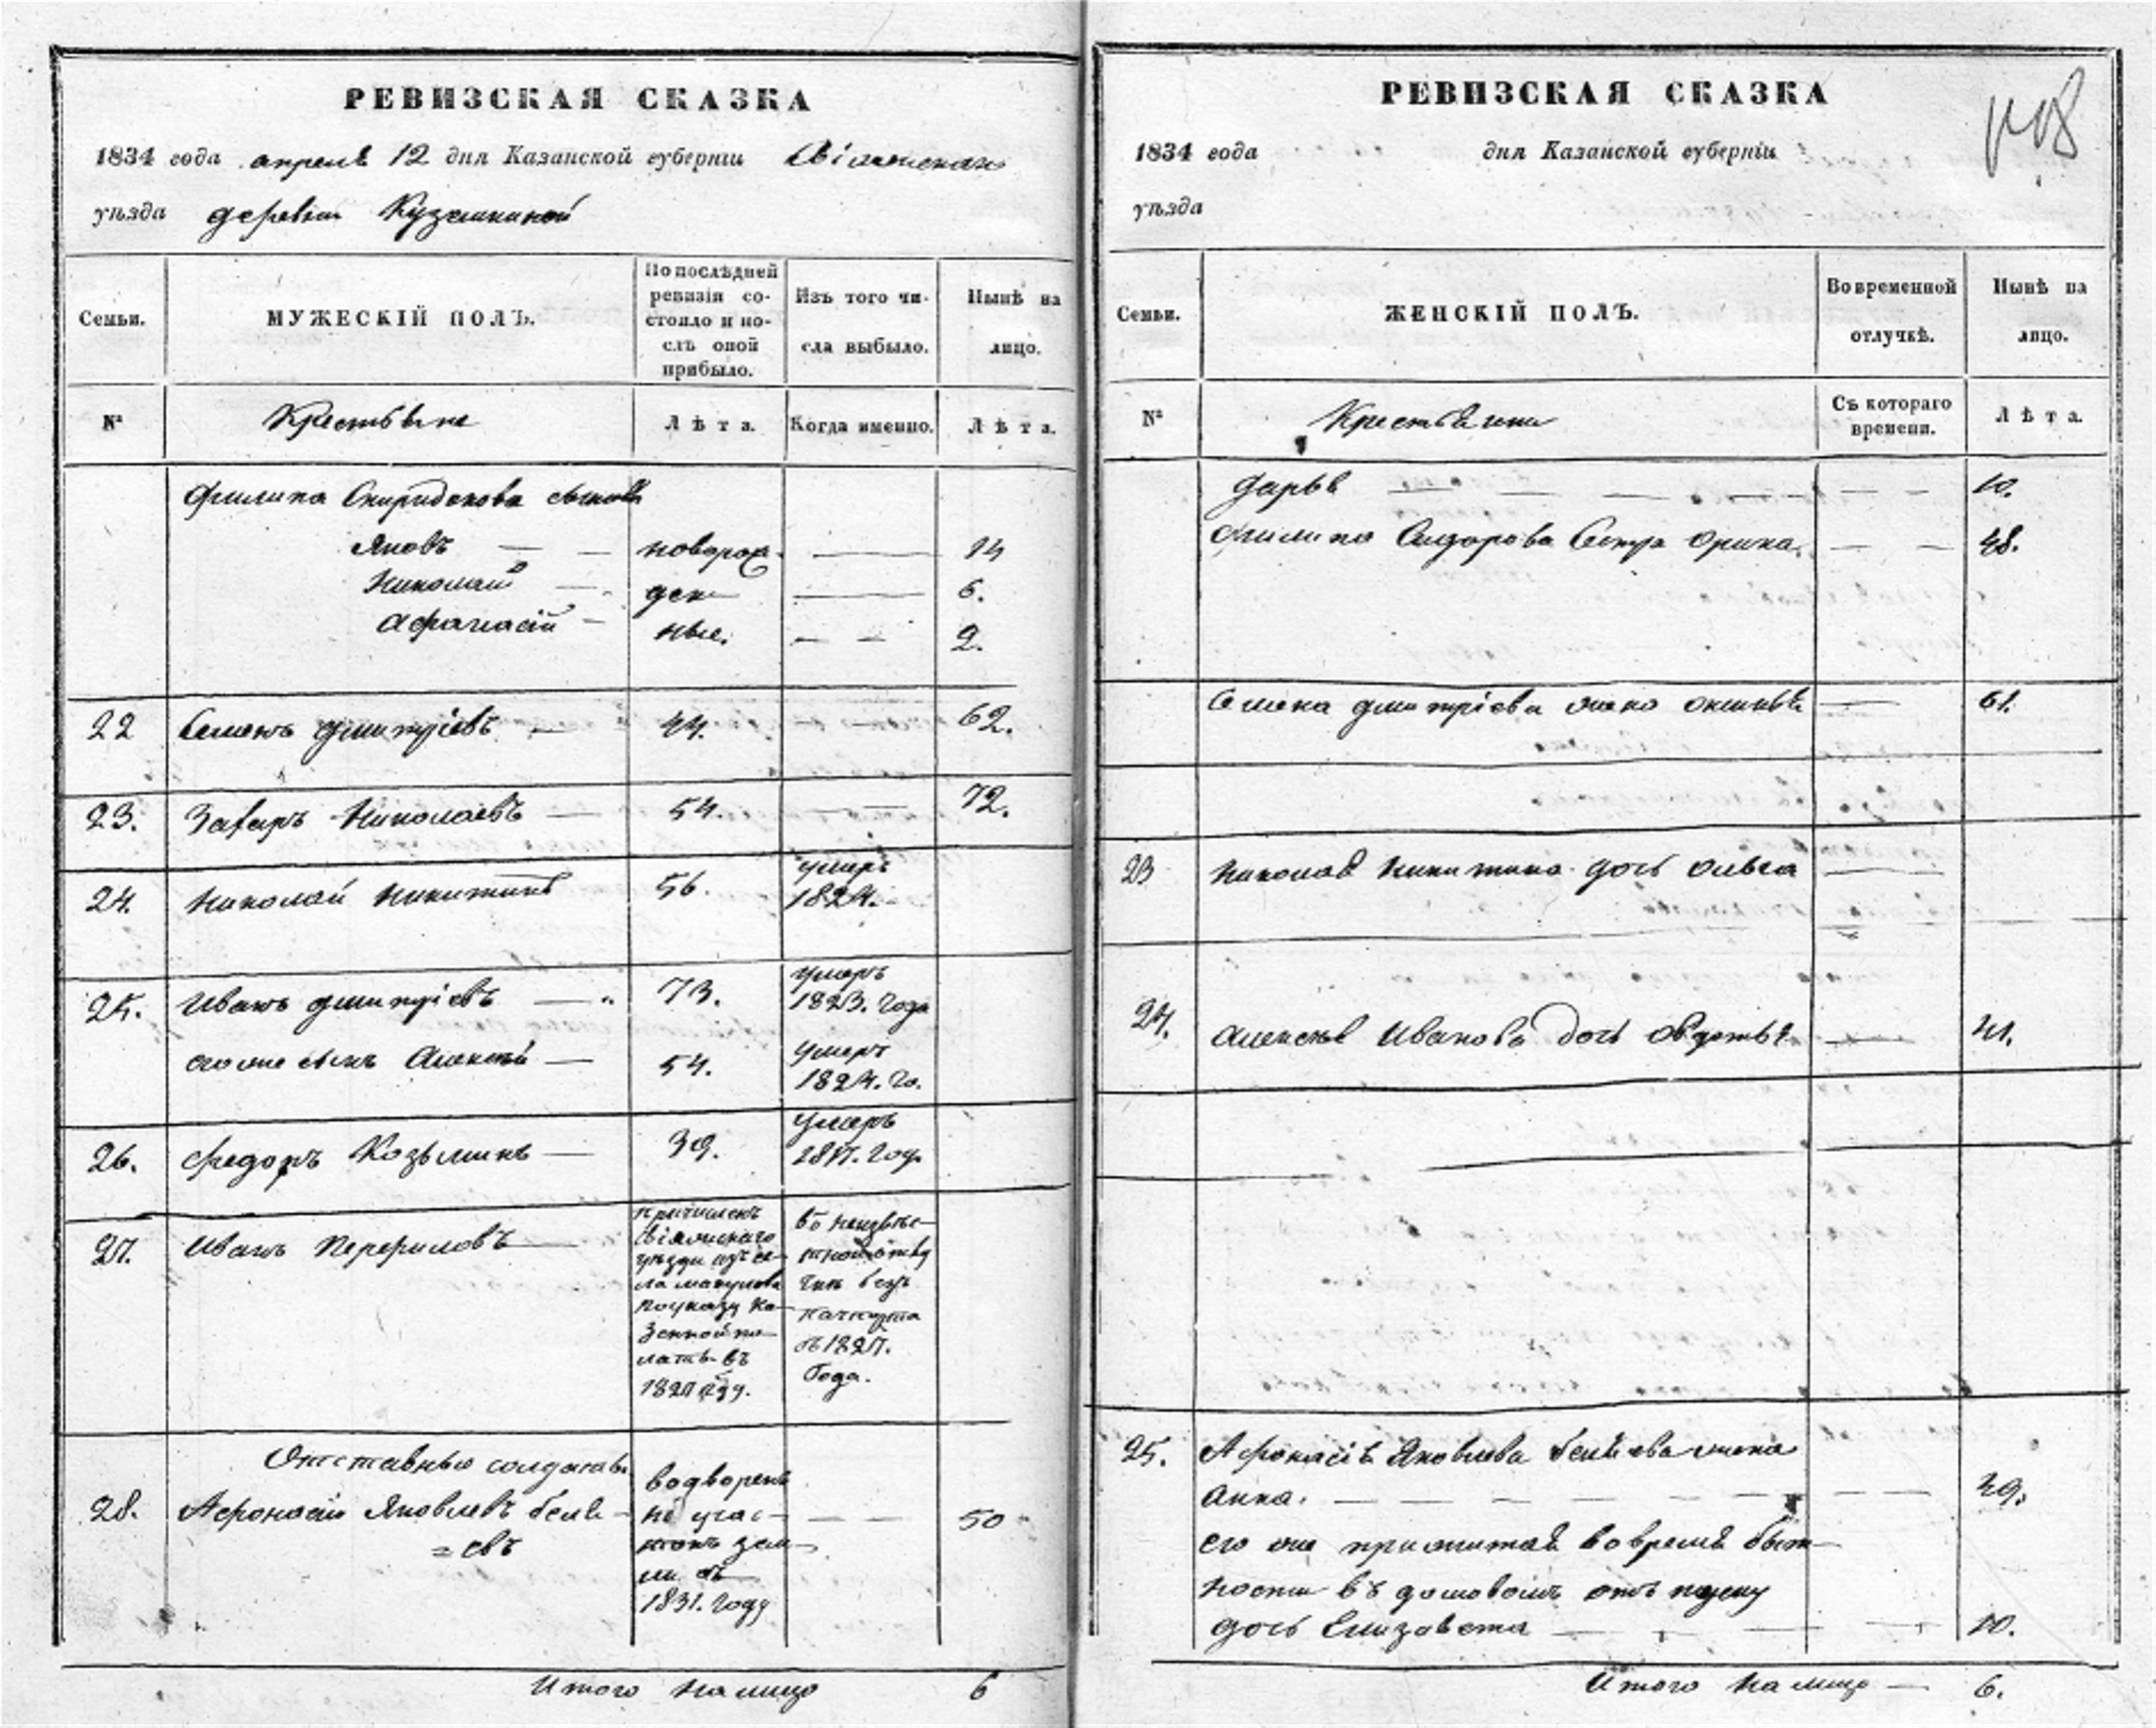 РЕВИЗСКАЯ СКАЗКА
1834 года апреля 12 дня Казанской губернiи Свiяжскаго
уѣзда деревни Кузьминой
Семьи.
МУЖЕСКІЙ ПОЛЪ.
По послѣдней
ревизіи со-
стояло и по-
слѣ оной
прибыло.
Изъ того чи-
сла выбыло.
Нынѣ на
лицо.
№
Крестьяне
Лѣта.
Когда именно.
Лѣта.
Филипа Спиридонова сыновья
Яковъ новорож- 14
Николай ден- 6.
Афанасiй ные. 2.
22 Семенъ Дмитрiевъ 44. 62.
23. Захаръ Николаевъ 54. 72.
24. Николай Никитинъ 56. умеръ
1824.
25. Иванъ Дмитрiевъ 73. умеръ
1823. года
его же сынъ Алексей 54. умеръ
1824. го.
26. Федоръ Козьминъ 39. умеръ
1817. году
27. Иванъ Перфиловъ
причисленъ
Свiяжскаго
уезда изъ се-
ла
по указу Ка-
зенной па-
латы въ
1827 году.
въ неизвес-
тной отлу
чке безъ
пачпорта
съ 1827.
года.
Отставные солдаты
28. Афонасiй Яковлевъ беля-
=евъ
водворенъ
на учас-
токъ зем-
ли въ
1831. году
50
Итого на лицо 6
РЕВИЗСКАЯ СКАЗКА
1834 года дня Казанской губернiи
уѣзда
Семьи.
ЖЕНСКІЙ ПОЛЪ.
Во временной
отлучкѣ.
Нынѣ на
лицо.
№
Крестьяне
Съ котораго
времени.
Лѣта.
Дарья 10.
Филипа Сидорова Сестра Орина 48.
Семена Дмитрiева жена 61.
23 Николая Никитина дочь Ольга
24. Алексея Иванова дочь Овдотья 41.
25. Афонасiя Яковлева беляева жена
Анна. 49.
его же прижитая во время быт-
ности въ домовомъ отпуску
дочь Елизавета 10.
Итого на лицо 6.